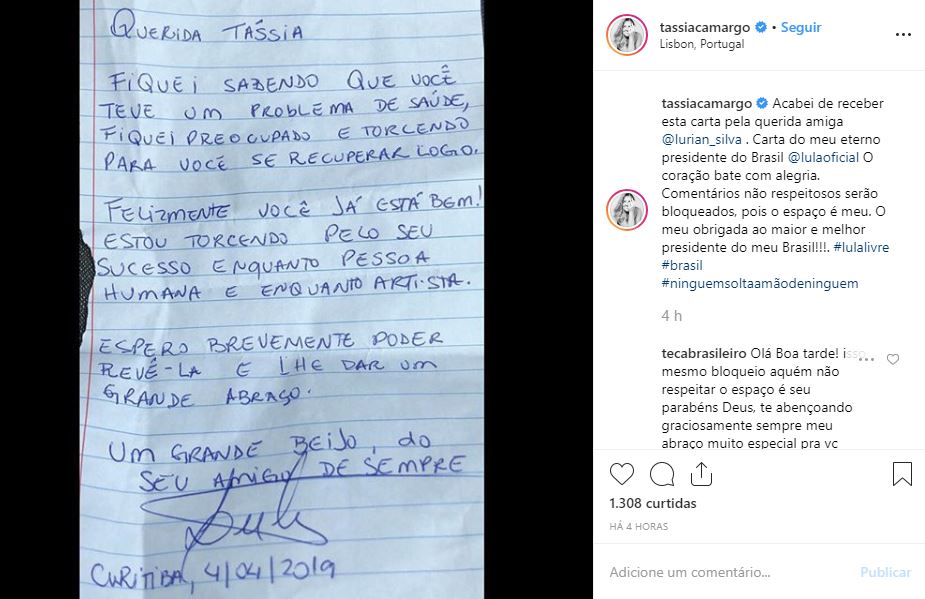 QUERIDA TÁSSIA
FIQUEI SABENDO QUE VOCÊ
TEVE UM PROBLEMA DE SAÚDE,
FIQUEI PREOCUPADO E TORCENDO
PARA VOCÊ SE RECUPERAR LOGO.
FELIZMENTE VOCÊ JÁ ESTÁ BEM!
ESTOU TORCENDO PELO SEU
SUCESSO ENQUANTO PESSOA
HUMANA E ENQUANTO ARTISTA.
ESPERO BREVEMENTE PODER
REVÊ-LA E LHE DAR UM
GRANDE ABRAÇO.
UM GRANDE BEIJO, do
SEU AMIGO DE SEMPRE
Lula
CURITIBA, 4/04/2019
tassiacamargo • Seguir
Lisbon, Portugal
tassiacamargo Acabei de receber
esta carta pela querida amiga
@lurian_silva . Carta do meu eterno
presidente do Brasil @lulaoficial O
coração bate com alegria.
Comentários não respeitosos serão
bloqueados, pois o espaço é meu. O
meu obrigada ao maior e melhor
presidente do meu Brasil!!!. #lulalivre
#brasil
#ninguemsoltaamãodeninguem
4 h
tecabrasileiro Olá Boa tarde! isso
mesmo bloqueio aquém não
respeitar o espaço é seu
parabéns Deus, te abençoando
graciosamente sempre meu
abraço muito especial pra vc
1.308 curtidas
HÁ 4 HORAS
Adicione um comentário... Publicar